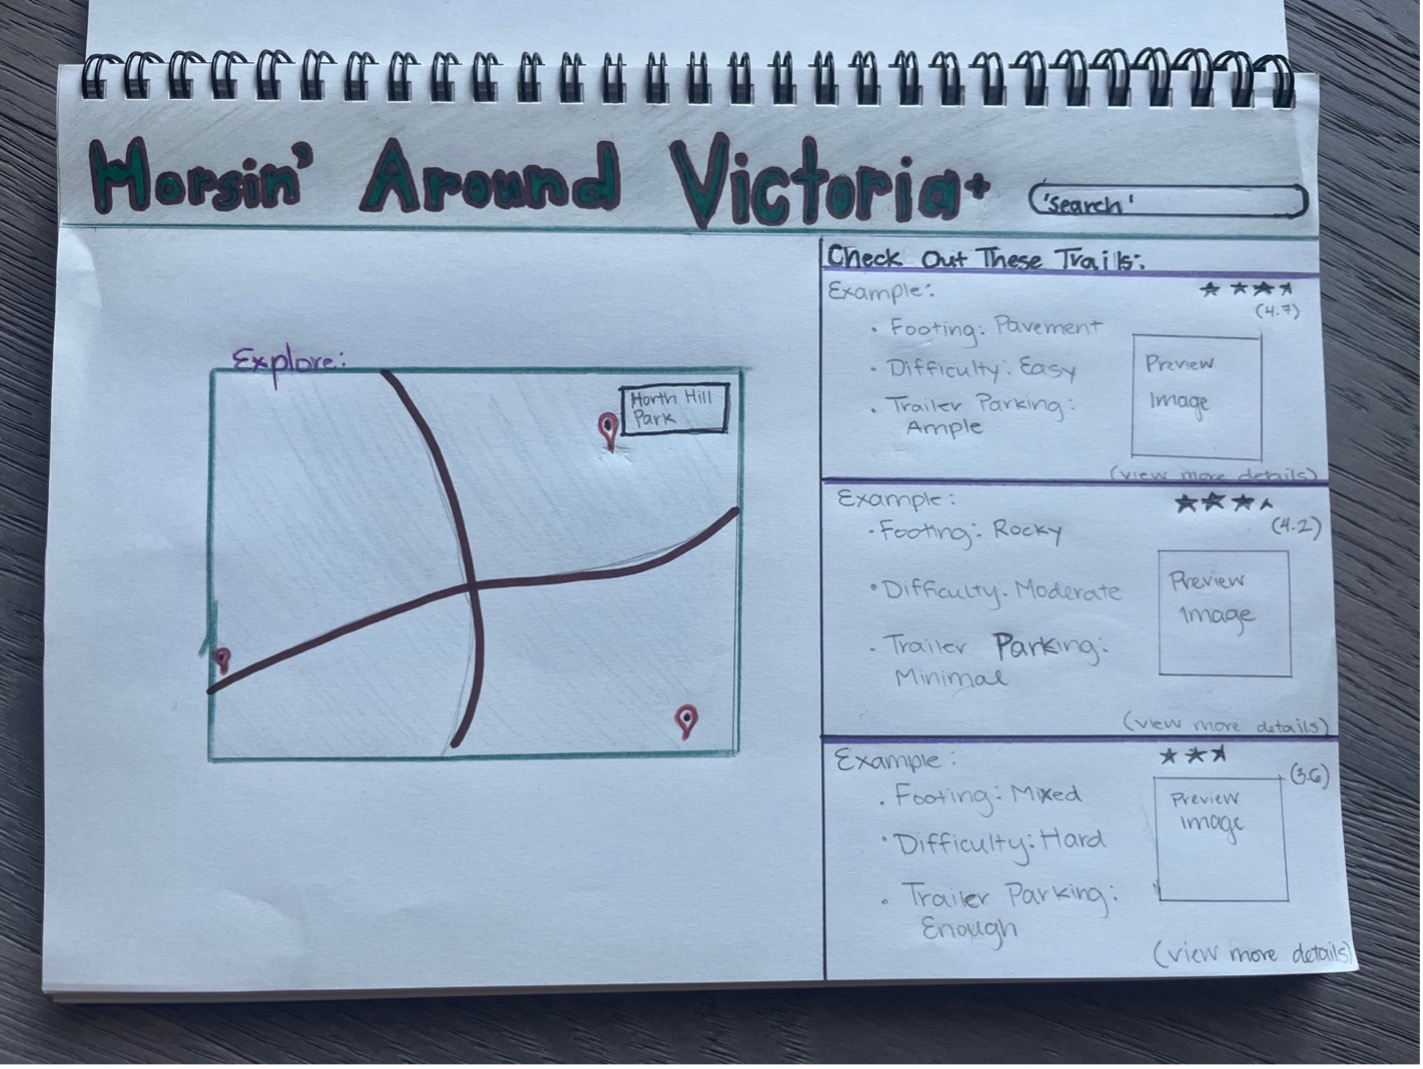 Horsin' Around Victoria+
'search'
Explore:
North Hill
Park
Check Out These Trails:
Example:
(4.7)
• Footing: Pavement
• Difficulty: Easy
• Trailer Parking:
Ample
Preview
Image
(view more details)
Example:
(4.2)
• Footing: Rocky
• Difficulty: Moderate
• Trailer Parking:
Minimal
Preview
Image
(view more details)
Example:
(3.6)
• Footing: Mixed
• Difficulty: Hard
• Trailer Parking:
Enough
Preview
Image
(view more details)